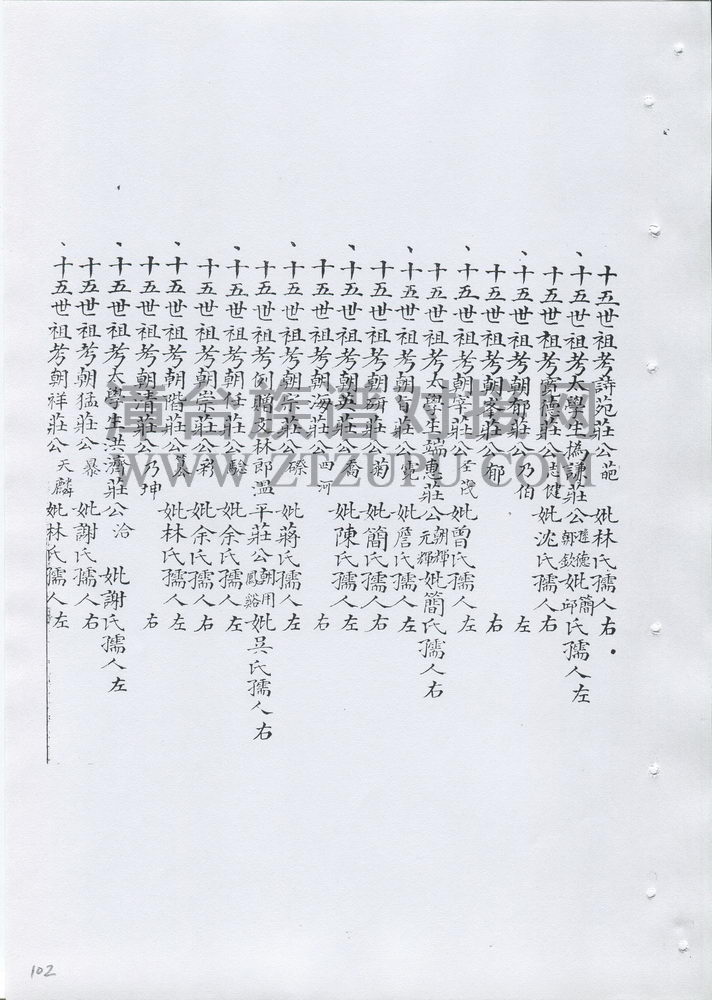 十五世祖考詩苑莊公葩 妣林氏孺人右
十五世祖考太學生撝謙莊公 朝欽 進德 妣簡邱氏孺人左
十五世祖考寶德莊公志健 妣沈氏孺人右
十五世祖考朝郁莊公乃伯 左
十五世祖考朝 莊公郁 右
十五世祖考朝宰莊公 妣曾氏孺人左
十五世祖考太學生端惠莊公朝輝 元輝 妣簡氏孺人右
十五世祖考朝 莊公 妣詹氏孺人左
十五世祖考朝研莊公菊 妣簡氏孺人右
十五世祖考朝英莊公喬 妣陳氏孺人左
十五世祖考朝海莊公四河 右
十五世祖考朝宗莊公磜 妣蔣氏孺人左
十五世祖考例贈文林郎溫平莊公朝用 鳳谿 妣吳氏孺人右
十五世祖考朝任莊公 妣余氏孺人左
十五世祖考朝崇莊公 妣余氏孺人右
十五世祖考朝 莊公 妣林氏孺人左
十五世祖考朝清莊公乃坤 右
十五世祖考太學生洪濟莊公洽 妣謝氏孺人左
十五世祖考朝猛莊公暴 妣謝氏孺人右
十五世祖考朝祥莊公天麟 妣林氏孺人左
臺台族谱对接网
WWW.ZTZUPU.COM
102